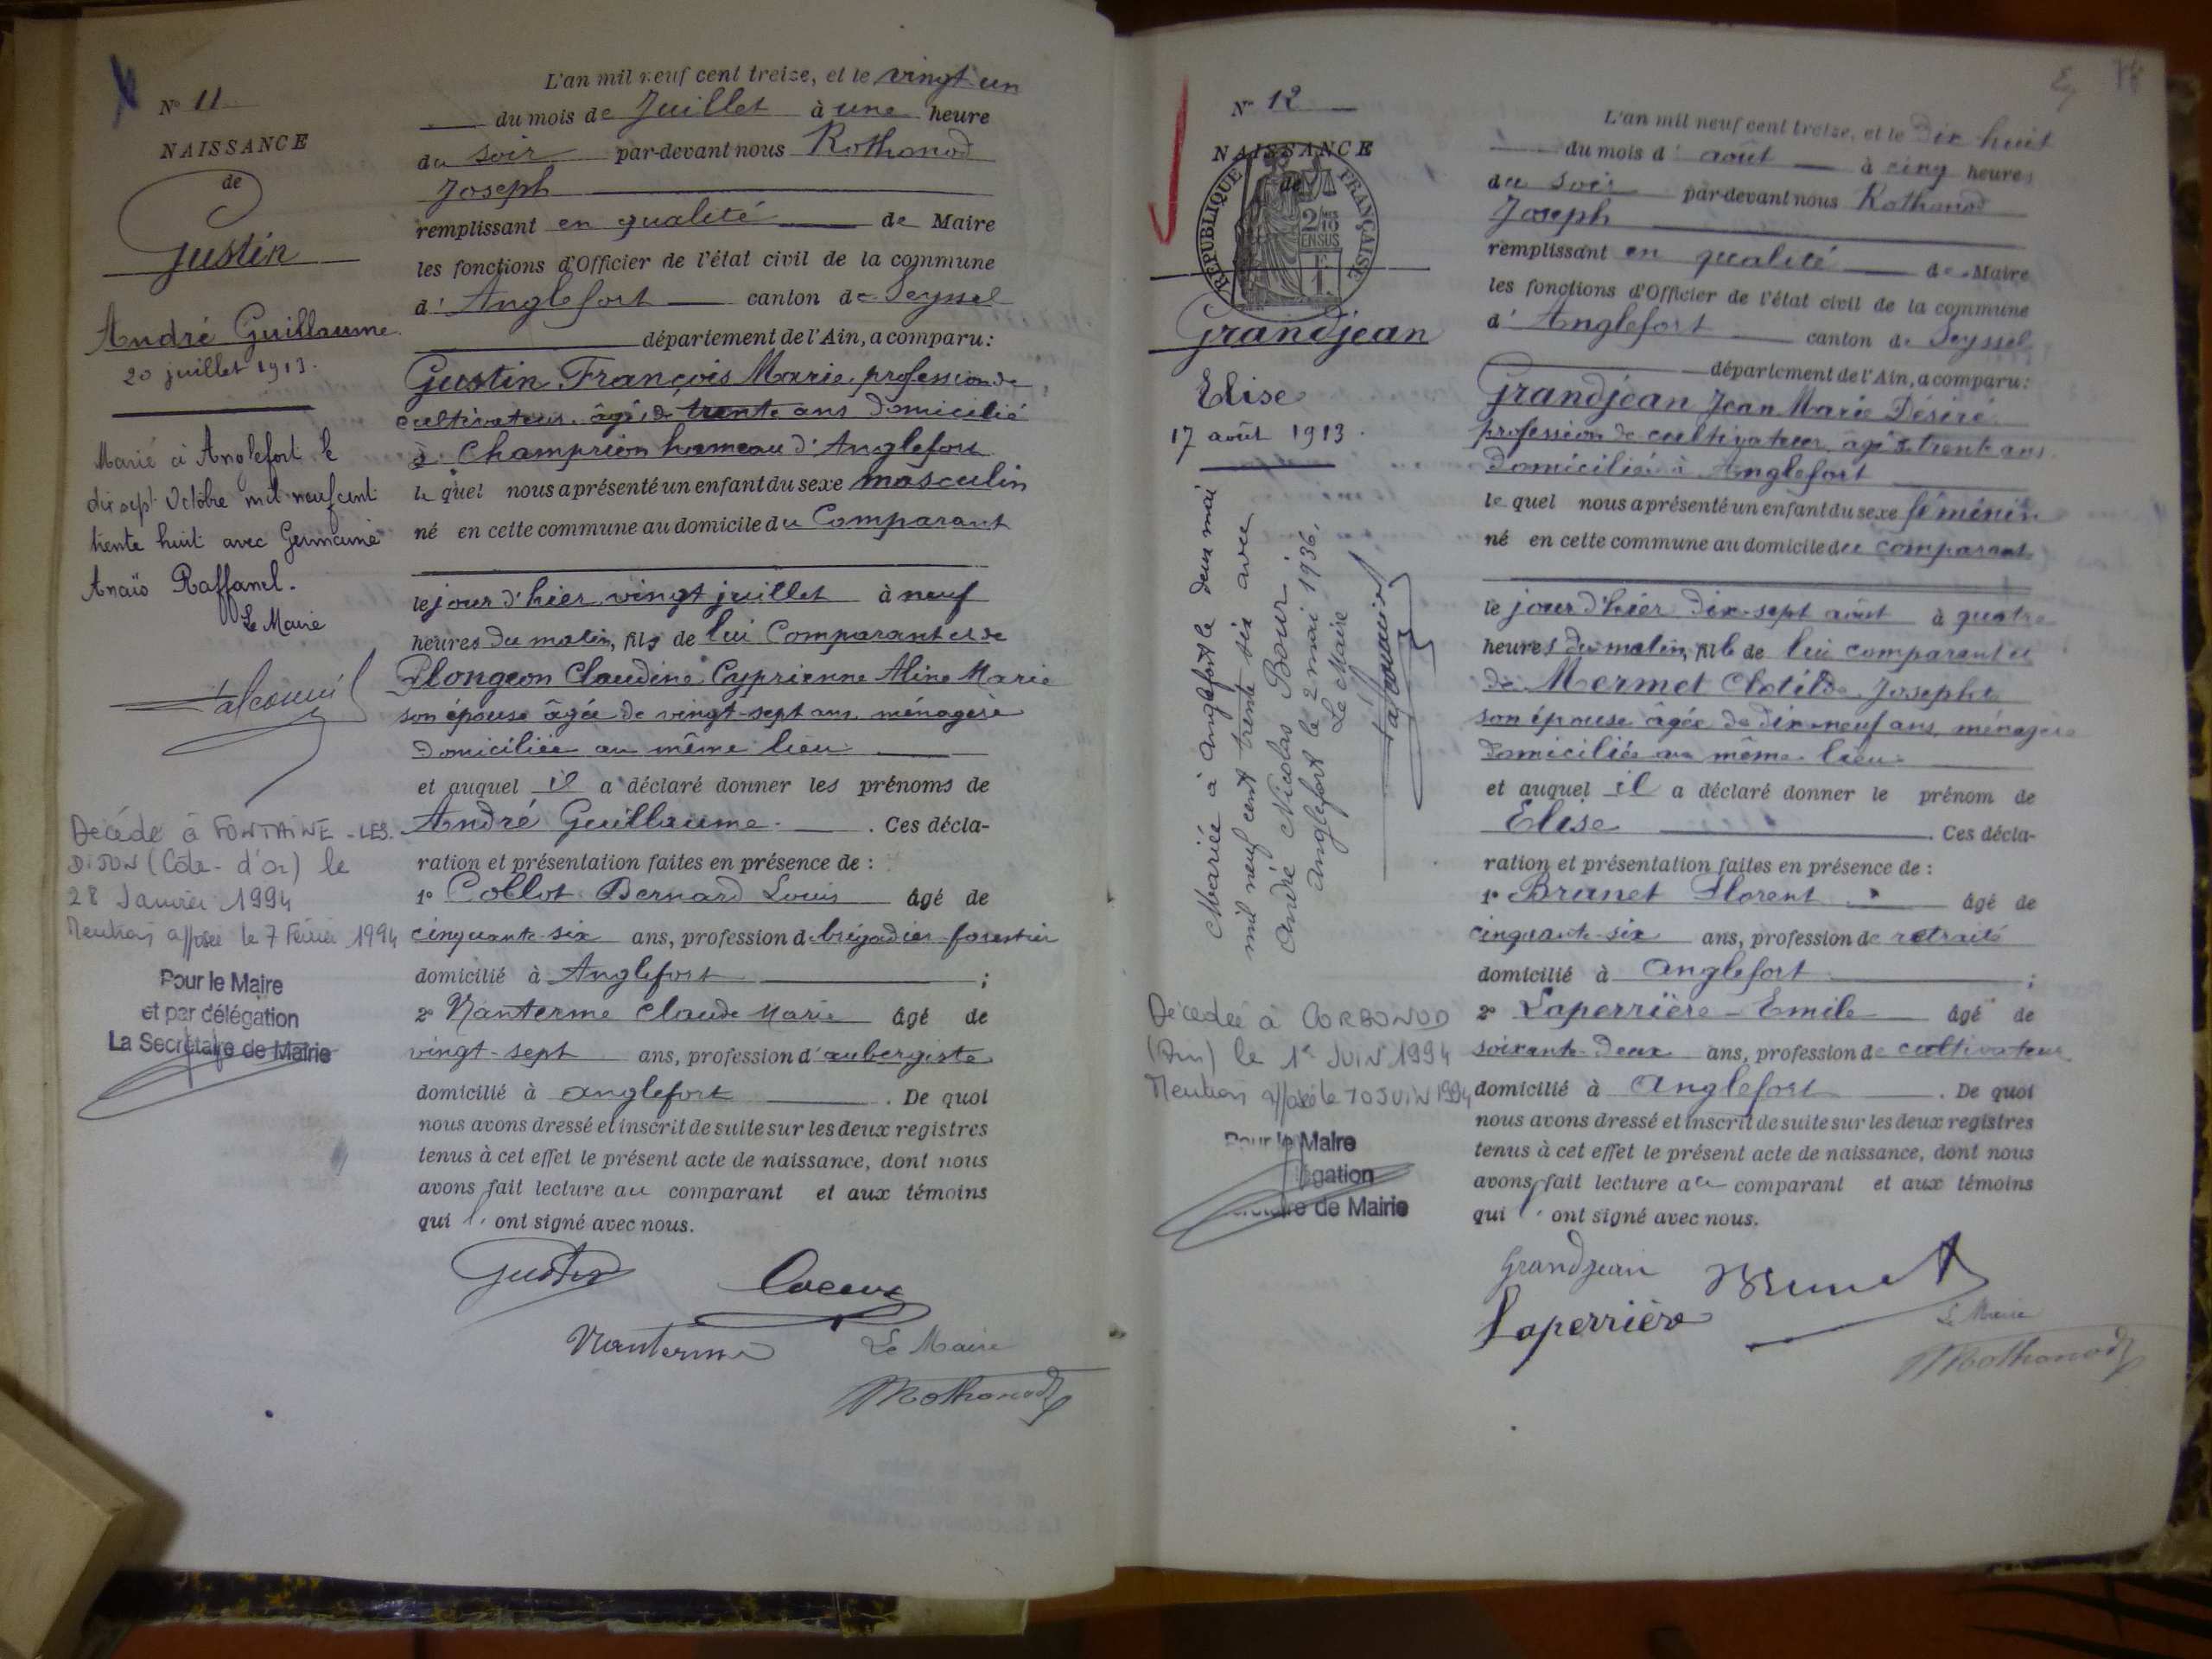 N° 11
NAISSANCE
de
Gustin
André Guillaume
20 juillet 1913.
Marié à Anglefort le
dix sept Octobre mil neuf cent
trente huit avec Germaine
Anaïs Raffanel.
Le Maire
Décédé à FONTAINE-LES-
DIJON (Côte-d'Or) le
28 Janvier 1994
Mention apposée le 7 Février 1994
Pour le Maire
et par délégation
La Secrétaire de Mairie
L'an mil neuf cent treize, et le vingt-un
du mois de Juillet à une heure
du soir par-devant nous Rothonod
Joseph
remplissant en qualité de Maire
les fonctions d'Officier de l'état civil de la commune
d'Anglefort canton de Seyssel
département de l'Ain, a comparu :
Gustin François Marie, profession de
cultivateur, âgé de trente ans domicilié
à Champrion hameau d'Anglefort
le quel nous a présenté un enfant du sexe masculin
né en cette commune au domicile du Comparant
le jour d'hier vingt juillet à neuf
heures du matin, fils de lui Comparant et de
Plongeon Claudine Cyprienne Aline Marie
son épouse âgée de vingt-sept ans, ménagère
domiciliée au même lieu
et auquel il a déclaré donner les prénoms de
André Guillaume. Ces décla-
ration et présentation faites en présence de :
1° Collot Bernard Louis âgé de
cinquante-six ans, profession de brigadier forestier
domicilié à Anglefort ;
2° Nanterme Claude Marie âgé de
vingt-sept ans, profession d'aubergiste
domicilié à Anglefort. De quoi
nous avons dressé et inscrit de suite sur les deux registres
tenus à cet effet le présent acte de naissance, dont nous
avons fait lecture au comparant et aux témoins
qui l'ont signé avec nous.
Gustin
Nanterme
Le Maire
Rothonod
N° 12
NAISSANCE
de
REPUBLIQUE FRANÇAISE
2/10
EN SUS
Grandjean
Elise
17 août 1913.
Mariée à Anglefort le deux mai
mil neuf cent trente six avec
André Nicolas Bour.
Anglefort le 2 mai 1936.
Le Maire
Décédée à CORBONOD
(Ain) le 1er JUIN 1994
Mention apposée le 10 JUIN 1994
Pour le Maire
égation
de Mairie
L'an mil neuf cent treize, et le Dix huit
du mois d'août à cinq heures
du soir par-devant nous Rothonod
Joseph
remplissant en qualité de Maire
les fonctions d'Officier de l'état civil de la commune
d'Anglefort canton de Seyssel
département de l'Ain, a comparu :
Grandjean Jean Marie Désiré
profession de cultivateur, âgé de trente ans
domicilié à Anglefort
le quel nous a présenté un enfant du sexe féminin
né en cette commune au domicile du comparant
le jour d'hier Dix-sept août à quatre
heures du matin, fille de lui comparant et
de Mermet Clotilde Josephte
son épouse âgée de dix-neuf ans, ménagère
domiciliée au même lieu
et auquel il a déclaré donner le prénom de
Elise. Ces décla-
ration et présentation faites en présence de :
1° Brunet Florent âgé de
cinquante-six ans, profession de retraité
domicilié à Anglefort ;
2° Laperrière Emile âgé de
soixante-deux ans, profession de cultivateur
domicilié à Anglefort. De quoi
nous avons dressé et inscrit de suite sur les deux registres
tenus à cet effet le présent acte de naissance, dont nous
avons fait lecture au comparant et aux témoins
qui l'ont signé avec nous.
Grandjean Brunet
Laperrière
Le Maire
Rothonod